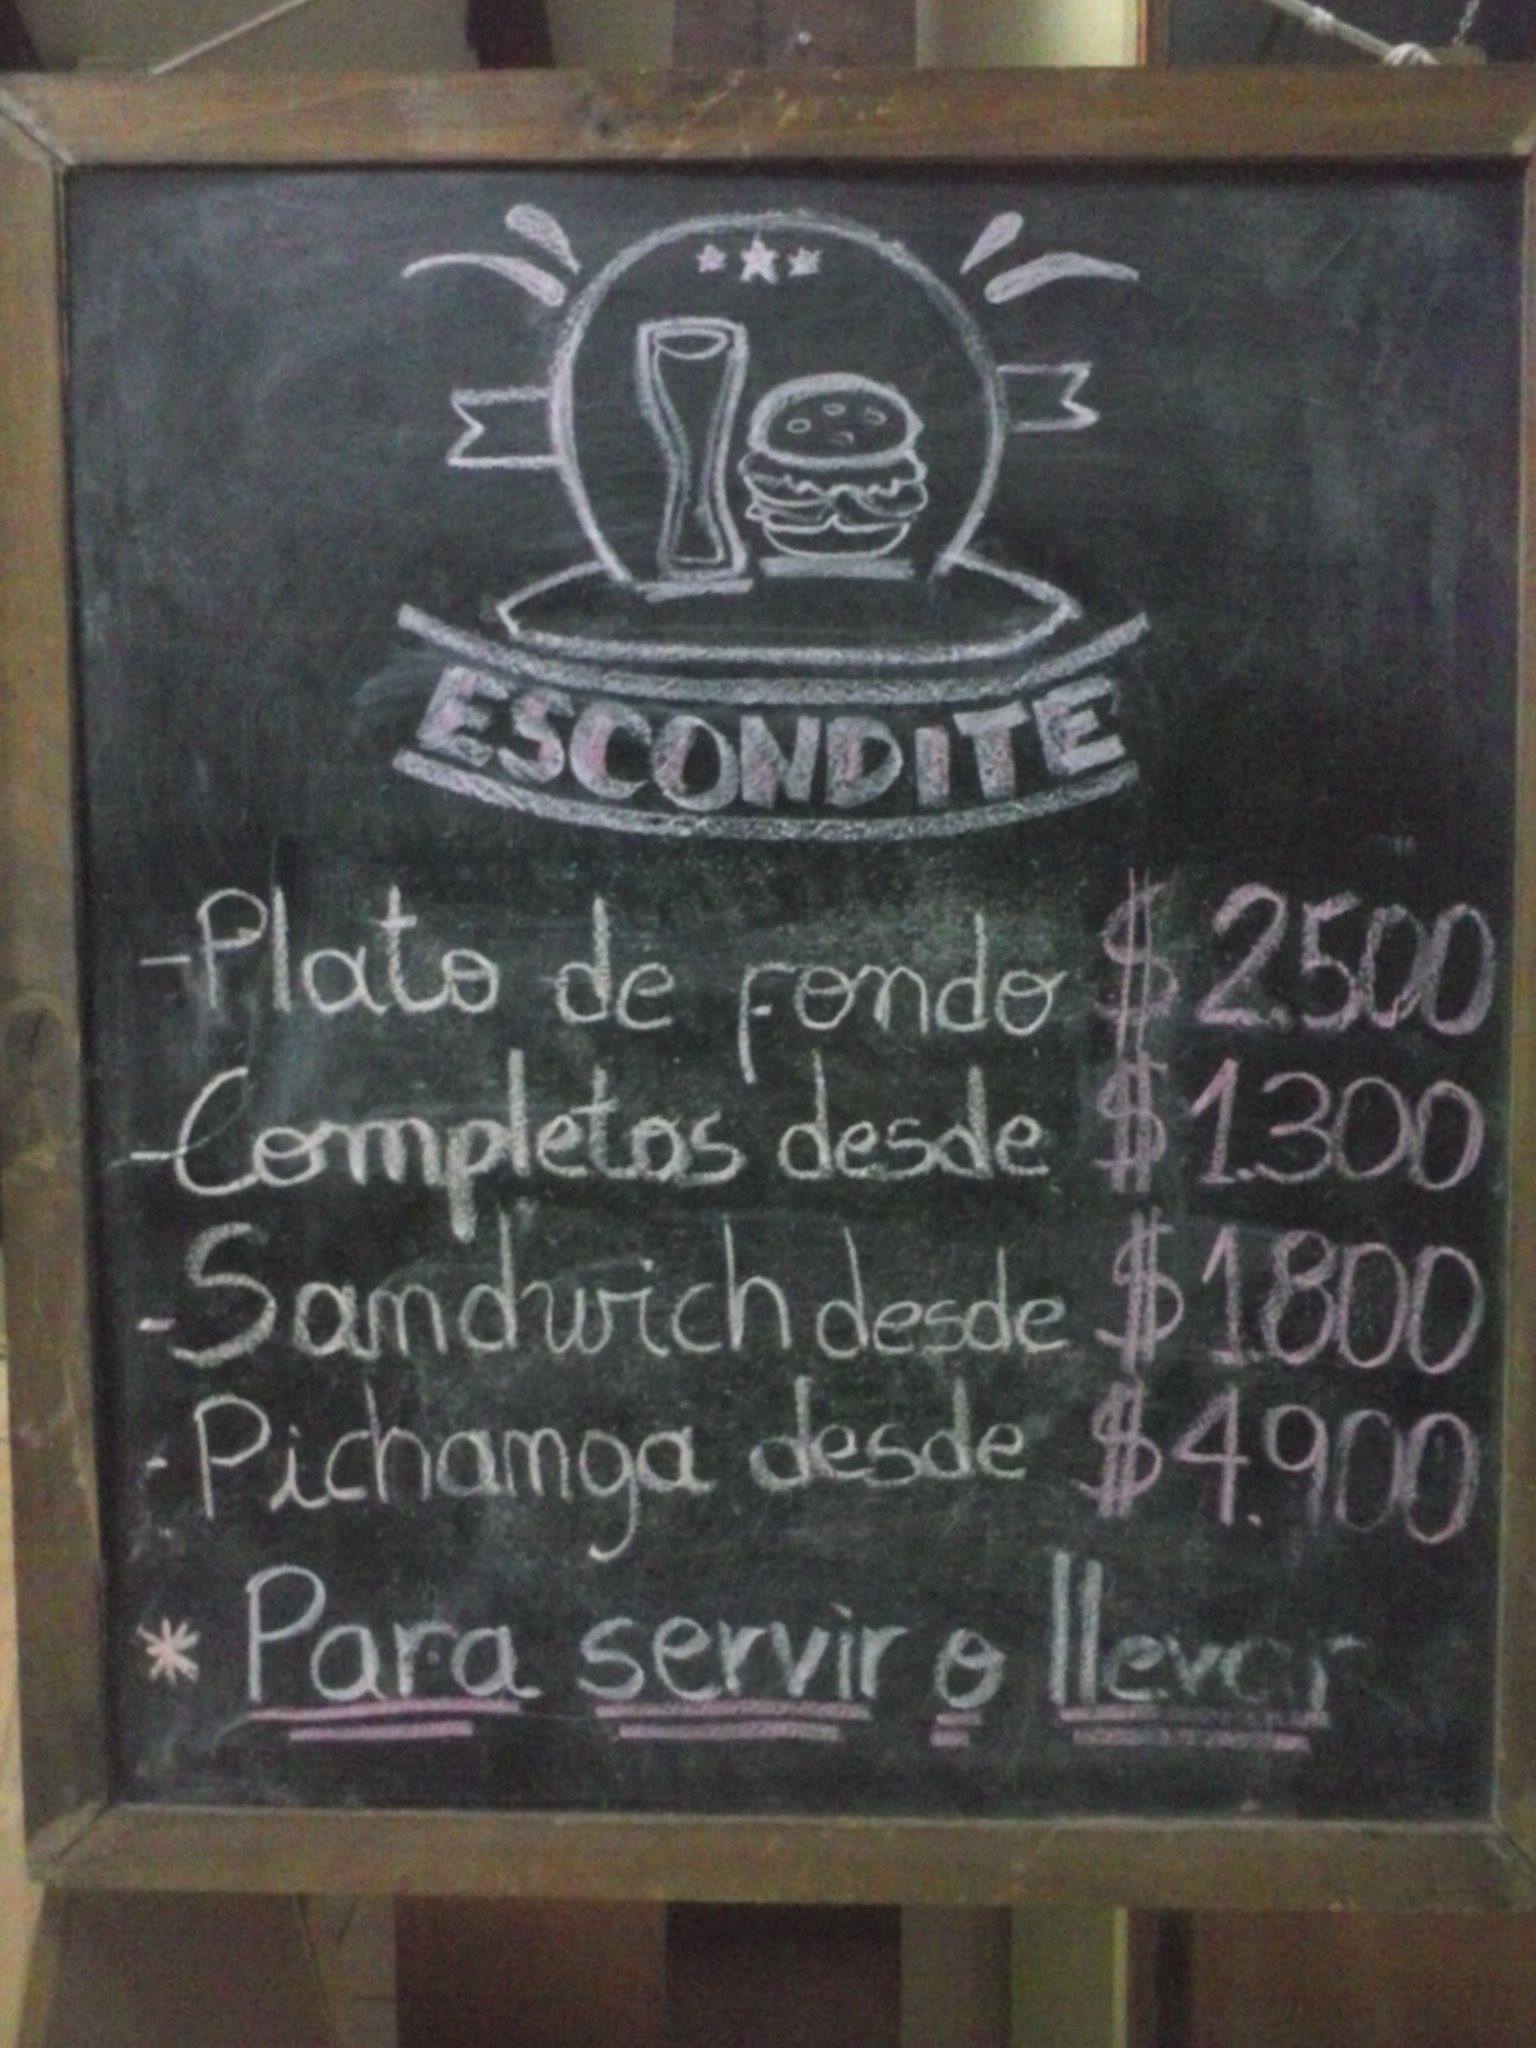 ESCONDITE
-Plato de fondo $2.500
-Completos desde $1.300
-Sandwich desde $1.800
-Pichanga desde $4.900
* Para servir o llevar